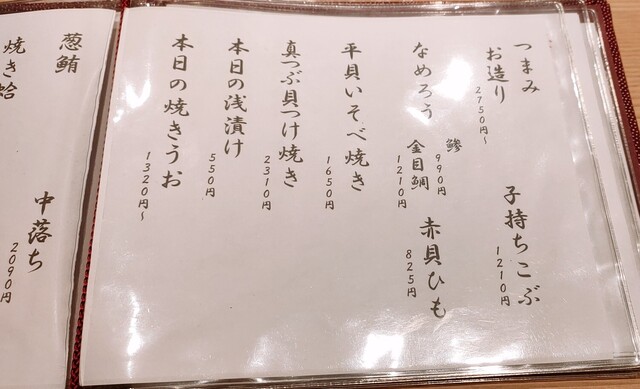 つまみ
お造り
2750円~
子持ちこぶ
1210円
なめろう
鯵
990円
金目鯛
1210円
赤貝ひも
825円
平貝いそべ焼き
1650円
真つぶ貝つけ焼き
2310円
本日の浅漬け
550円
本日の焼きうお
1320円~
葱鮪
中落ち
2090円
焼き蛤